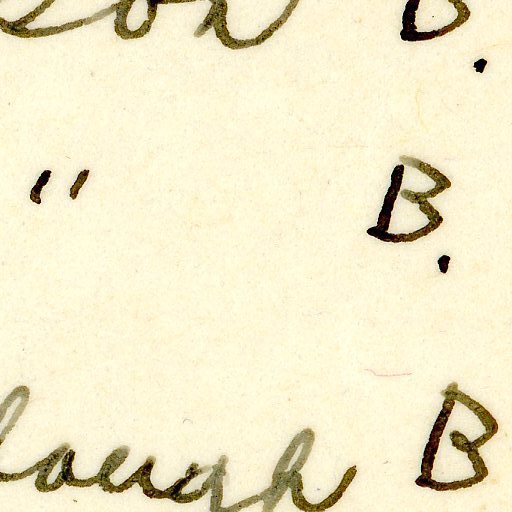 son B.
" B.
lough B